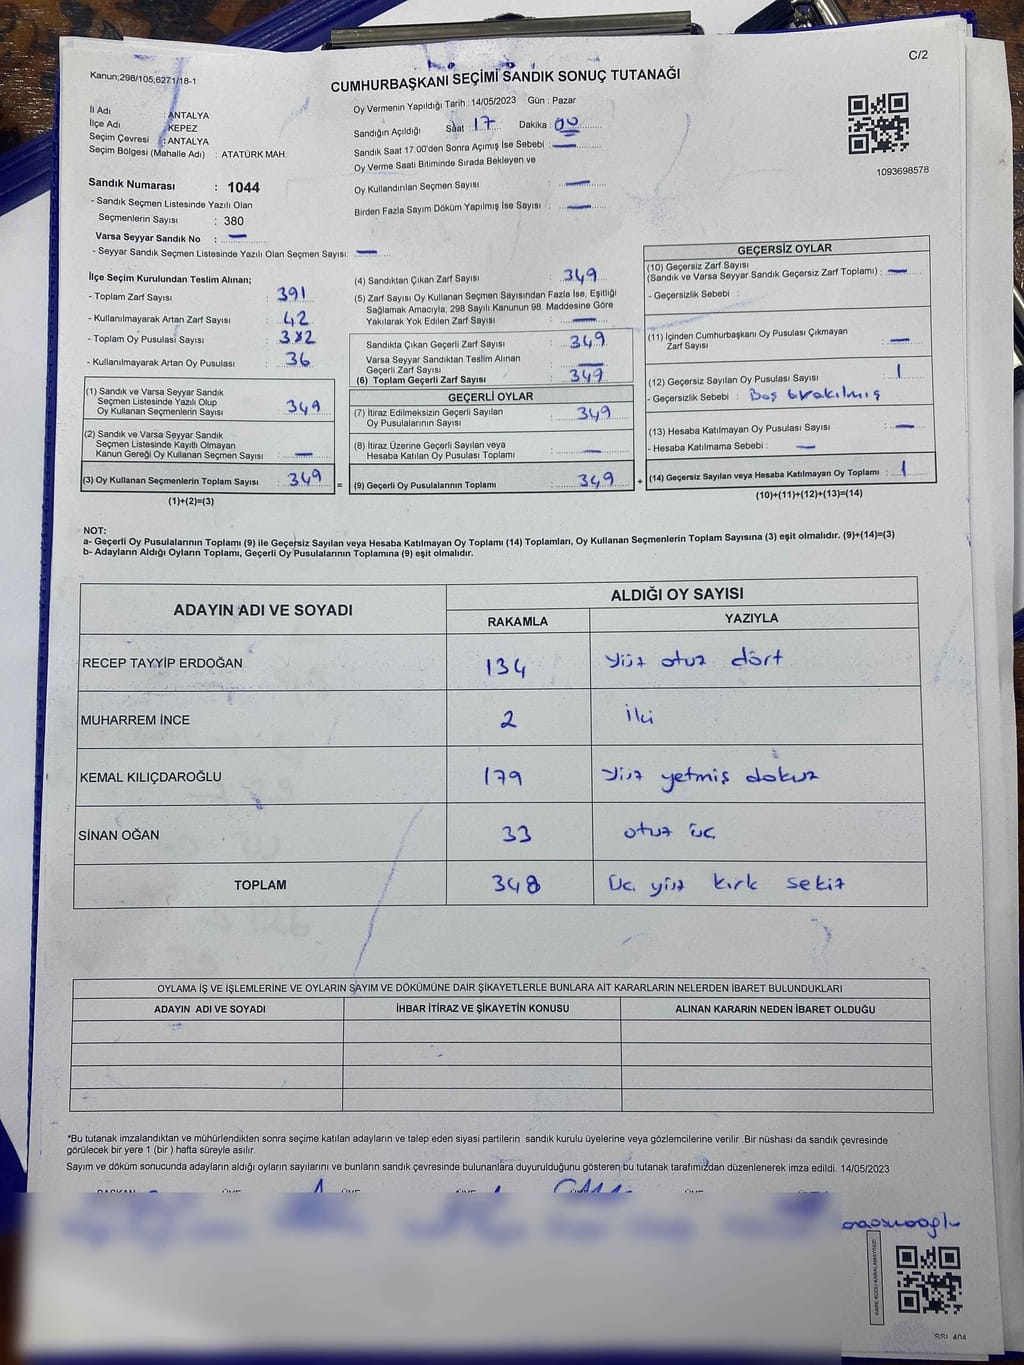 C/2
Kanun;298/105,6271/18-1
CUMHURBAŞKANI SEÇİMİ SANDIK SONUÇ TUTANAĞI
İl Adı : ANTALYA
İlçe Adı : KEPEZ
Seçim Çevresi : ANTALYA
Seçim Bölgesi (Mahalle Adı) : ATATÜRK MAH.
Sandık Numarası : 1044
- Sandık Seçmen Listesinde Yazılı Olan
Seçmenlerin Sayısı : 380
Varsa Seyyar Sandık No : —
- Seyyar Sandık Seçmen Listesinde Yazılı Olan Seçmen Sayısı: —
Oy Vermenin Yapıldığı Tarih : 14/05/2023 Gün : Pazar
Sandığın Açıldığı Saat 17 Dakika : 00
Sandık Saat 17.00'den Sonra Açımış İse Sebebi : —
Oy Verme Saati Bitiminde Sırada Bekleyen ve
Oy Kullandırılan Seçmen Sayısı : —
Birden Fazla Sayım Döküm Yapılmış İse Sayısı : —
1093698578
İlçe Seçim Kurulundan Teslim Alınan;
- Toplam Zarf Sayısı : 391
- Kullanılmayarak Artan Zarf Sayısı : 42
- Toplam Oy Pusulası Sayısı :
- Kullanılmayarak Artan Oy Pusulası : 36
(1) Sandık ve Varsa Seyyar Sandık
Seçmen Listesinde Yazılı Olup
Oy Kullanan Seçmenlerin Sayısı : 349
(2) Sandık ve Varsa Seyyar Sandık
Seçmen Listesinde Kayıtlı Olmayan
Kanun Gereği Oy Kullanan Seçmen Sayısı : —
(3) Oy Kullanan Seçmenlerin Toplam Sayısı : 349 =
(1)+(2)=(3)
(4) Sandıktan Çıkan Zarf Sayısı : 349
(5) Zarf Sayısı Oy Kullanan Seçmen Sayısından Fazla İse, Eşitliği
Sağlamak Amacıyla; 298 Sayılı Kanunun 98. Maddesine Göre
Yakılarak Yok Edilen Zarf Sayısı : —
Sandıkta Çıkan Geçerli Zarf Sayısı : 349
Varsa Seyyar Sandıktan Teslim Alınan
Geçerli Zarf Sayısı : —
(6) Toplam Geçerli Zarf Sayısı : 349
GEÇERLİ OYLAR
(7) İtiraz Edilmeksizin Geçerli Sayılan
Oy Pusulalarının Sayısı : 349
(8) İtiraz Üzerine Geçerli Sayılan veya
Hesaba Katılan Oy Pusulası Toplamı : —
(9) Geçerli Oy Pusulalarının Toplamı : 349 +
GEÇERSİZ OYLAR
(10) Geçersiz Zarf Sayısı
(Sandık ve Varsa Seyyar Sandık Geçersiz Zarf Toplamı) : —
- Geçersizlik Sebebi :
(11) İçinden Cumhurbaşkanı Oy Pusulası Çıkmayan
Zarf Sayısı : —
(12) Geçersiz Sayılan Oy Pusulası Sayısı : 1
- Geçersizlik Sebebi : Boş bırakılmış
(13) Hesaba Katılmayan Oy Pusulası Sayısı : —
- Hesaba Katılmama Sebebi : —
(14) Geçersiz Sayılan veya Hesaba Katılmayan Oy Toplamı : 1
(10)+(11)+(12)+(13)=(14)
NOT:
a- Geçerli Oy Pusulalarının Toplamı (9) ile Geçersiz Sayılan veya Hesaba Katılmayan Oy Toplamı (14) Toplamları, Oy Kullanan Seçmenlerin Toplam Sayısına (3) eşit olmalıdır. (9)+(14)=(3)
b- Adayların Aldığı Oyların Toplamı, Geçerli Oy Pusulalarının Toplamına (9) eşit olmalıdır.
ADAYIN ADI VE SOYADI
ALDIĞI OY SAYISI
RAKAMLA YAZIYLA
RECEP TAYYİP ERDOĞAN 134 yüz otuz dört
MUHARREM İNCE 2 iki
KEMAL KILIÇDAROĞLU 179 yüz yetmiş dokuz
SİNAN OĞAN 33 otuz üç
TOPLAM 348 üç yüz kırk sekiz
OYLAMA İŞ VE İŞLEMLERİNE VE OYLARIN SAYIM VE DÖKÜMÜNE DAİR ŞİKAYETLERLE BUNLARA AİT KARARLARIN NELERDEN İBARET BULUNDUKLARI
ADAYIN ADI VE SOYADI İHBAR İTİRAZ VE ŞİKAYETİN KONUSU ALINAN KARARIN NEDEN İBARET OLDUĞU
*Bu tutanak imzalandıktan ve mühürlendikten sonra seçime katılan adayların ve talep eden siyasi partilerin sandık kurulu üyelerine veya gözlemcilerine verilir. Bir nüshası da sandık çevresinde
görülecek bir yere 1 (bir ) hafta süreyle asılır.
Sayım ve döküm sonucunda adayların aldığı oyların sayılarını ve bunların sandık çevresinde bulunanlara duyurulduğunu gösteren bu tutanak tarafımızdan düzenlenerek imza edildi. 14/05/2023
BAŞKAN ÜYE ÜYE ÜYE ÜYE ÜYE
KARE KODU KARALAMAYINIZ!